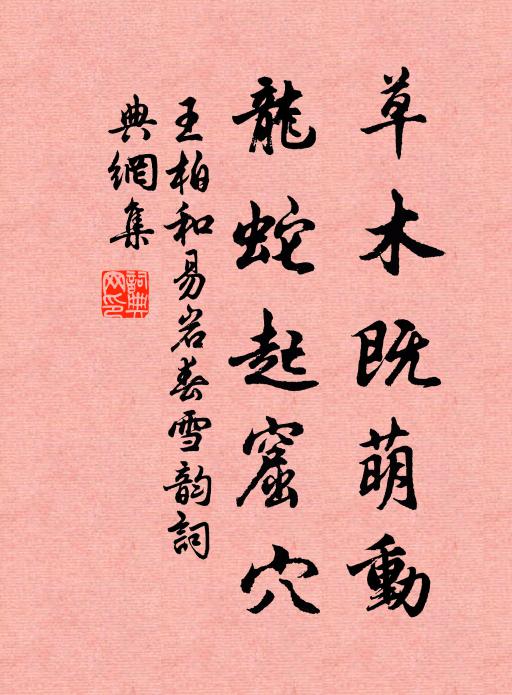 草木既萌動
龍蛇起窟穴
王柏和易岩春雪韵詞
典網集
詞典網印